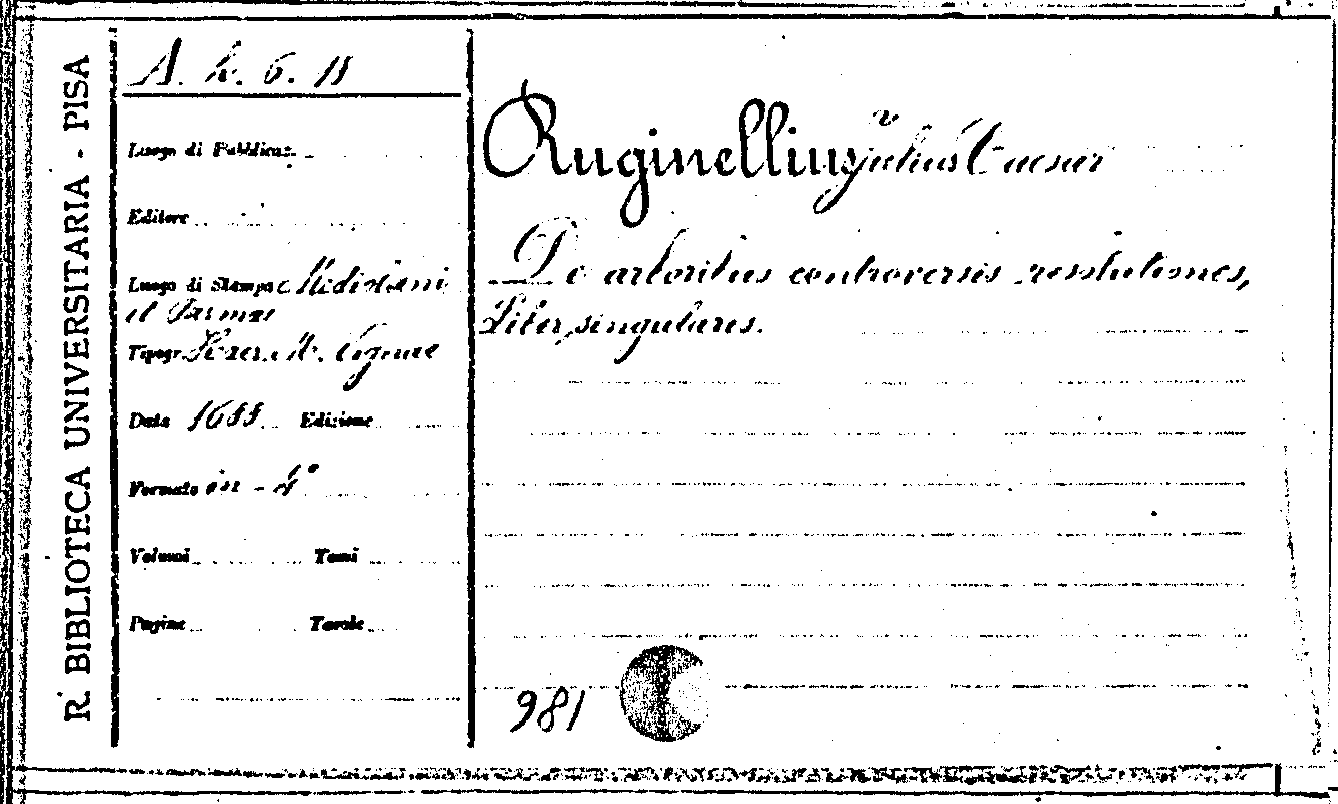 R. BIBLIOTECA UNIVERSITARIA - PISA
A. h. 6. 18
Luogo di Pubblicaz.
Editore
Luogo di Stampa Mediolani
et Parmae
Tipogr.
Data 1688 Edizione
Formato in - 4°
Volumi Tomi
Pagine Tavole
Ruginellius Julius Caesar
De arboribus controversis resolutiones,
Liber singularis.
981